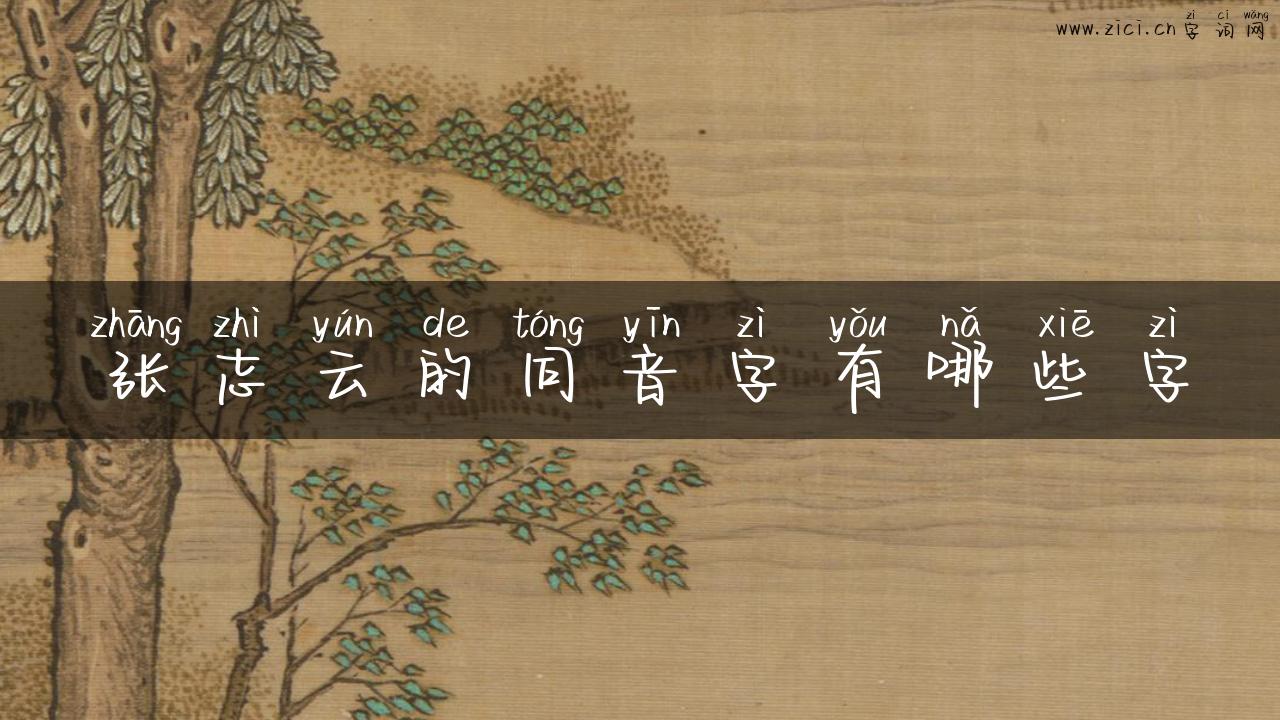 zì cí wǎng
www.zici.cn 字词网
zhāng zhì yún de tóng yīn zì yǒu nǎ xiē zì
张志云的同音字有哪些字